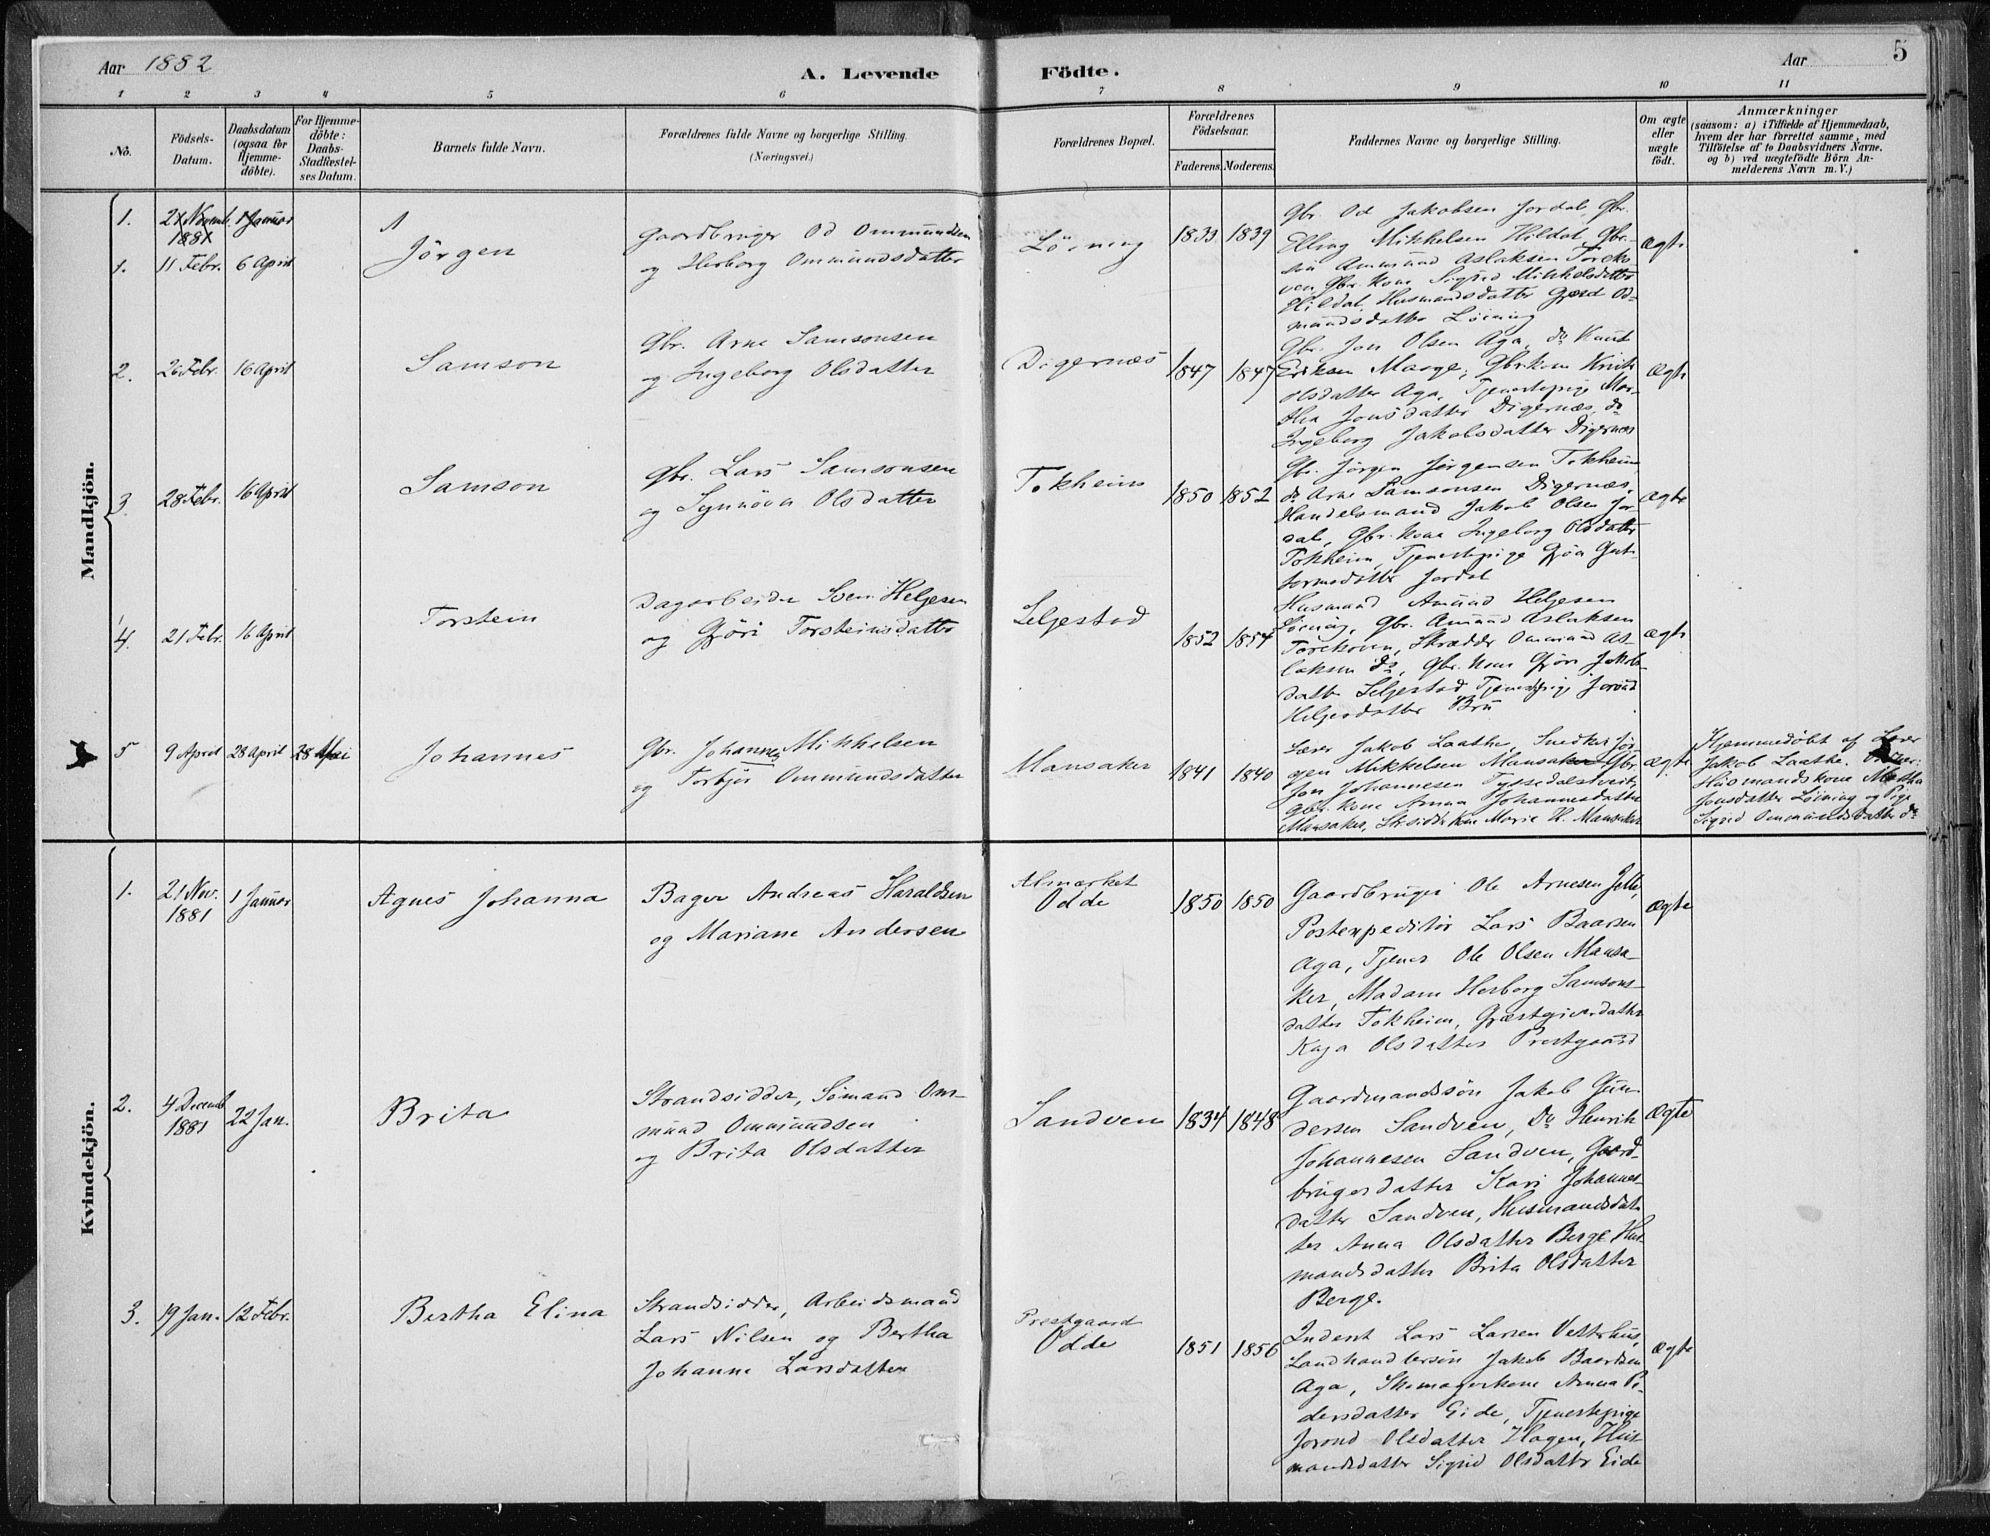 Aar 1882
A. Levende
Födte.
Aar
5
1 2 3 4 5 6 7 8 9 10 11
No.
Födsels-
Datum.
Daabsdatum
(ogsaa for
Hjemme-
döbte).
For Hjemme-
döbte:
Daabs-
Stadfæstel-
ses Datum.
Barnets fulde Navn.
Forældrenes fulde Navne og borgerlige Stilling.
(Næringsvei.)
Forældrenes Bopæl.
Forældrenes
Födselsaar.
Faderens. Moderens.
Faddernes Navne og borgerlige Stilling.
Om ægte
eller
uægte
födt.
Anmærkninger
(saasom: a) i Tilfælde af Hjemmedaab,
hvem der har forrettet samme, med
Tilföielse af to Daabsvidners Navne.
og b) ved uægtefödte Börn An-
melderens Navn m. V.)
Mandkjön.
1. 21 Novemb. 1 Januar
1881
1. 11 Febr. 6 April
Jörgen
Gaardbruger Od Ommundsen
og Herborg Ommundsdatter
Löining
1839 1839
Gbr. Od Jakobsen Jordal, Gbr.
Elling Mikkelsen Hildal, Gbr.
Ammund Aslaksen
Gbr. Kone Sigrid Mikkelsdatter
Hildal, Husmandsdatter Gjerd Od-
mundsdatter Löining
Ægte
2. 26 Febr. 16 April
Samson
Gbr. Arne Samsonsen
og Ingeborg Olsdatter
Digernæs
1847 1847
Gbr. Jon Olsen Aga, do Knut
Eriksen Maage, Gbrkone
Olsdatter Aga, Tjenestepige Mar-
tha Jonsdatter Digernæs, do
Ingeborg Jakobsdatter Digernæs
Ægte
3. 28 Febr. 16 April
Samson
Gbr. Lars Samsonsen
og Synnöva Olsdatter
Tokheim
1850 1852
Gbr. Jörgen Jörgensen Tokheim
do Arne Samsonsen Digernæs,
Handelsmand Jakob Olsen Jor-
dal, Gbr. Kone Ingeborg Olsdatter
Tokheim, Tjenestepige Gjöa Gut-
tormsdatter Jordal
Ægte
4. 21 Febr. 16 April
Torstein
Dagarbeider Svein Helgesen
og Gjöri Torsteinsdatter
Seljestad
1852 1854
Husmand Amund Helgesen
Löining, Gbr. Amund Aslaksen
Skrædder Ommund As-
laksen do, Gbr. Kone Gjöri Jakobs-
datter Seljestad, Tjenestepige Jorond
Helgesdatter Bru
Ægte
5 9 April 28 April 28 Mai
Johannes
Gbr. Johannes Mikkelsen
og Torbjör Ommundsdatter
Mansaker
1841 1840
Lærer Jakob Laathe, Snedker Jör-
gen Mikkelsen Mansaker, Gbr.
Jon Johannesen Tyssedalstveit,
Gbr. Kone Anna Johannesdatter
Mansaker, Strsidderkone Marie H. Mansaker
Ægte
Hjemmedöbt af Lærer
Jakob Laathe.
Husmandskone Martha
Jonsdatter Löining og Pige
Sigrid Ommundsdatter do
Kvindekjön.
1. 21 Nov. 1 Januar
1881
Agnes Johanna
Bager Andreas Haraldsen
og Mariane Andersen
Almærket
Odde
1850 1850
Gaardbruger Ole Arnesen Jelle,
Postexpeditör Lars Baarsen
Aga, Tjener Ole Olsen Mansa-
ker, Madam Herborg Samsons-
datter Tokheim, Gjæstgiverdatter
Kaja Olsdatter Prestgaard
Ægte
2. 4 Decemb. 22 Jan.
1881
Brita
Strandsidder, Sömand Om-
mund Ommundsen
og Brita Olsdatter
Sandven
1834 1848
Gaardmandssön Jakob Gun-
dersen Sandven, Do Henrik
Johannesen Sandven, Gaard-
brugerdatter Kari Johannes-
datter Sandven, Husmandsdat-
ter Anna Olsdatter Berge, Hus-
mandsdatter Brita Olsdatter
Berge.
Ægte
3. 19 Jan. 12 Febr.
Bertha Elina
Strandsidder, Arbeidsmand
Lars Nilsen og Bertha
Johanne Larsdatter
Prestgaard
Odde
1851 1856
Inderst Lars Larsen Vetterhus,
Landhandlersön Jakob Baardsen
Aga, Skomagerkone Anna Pe-
dersdatter Eide, Tjenestepige
Jorond Olsdatter Hagen, Hus-
mandsdatter Sigrid Olsdatter Eide
Ægte